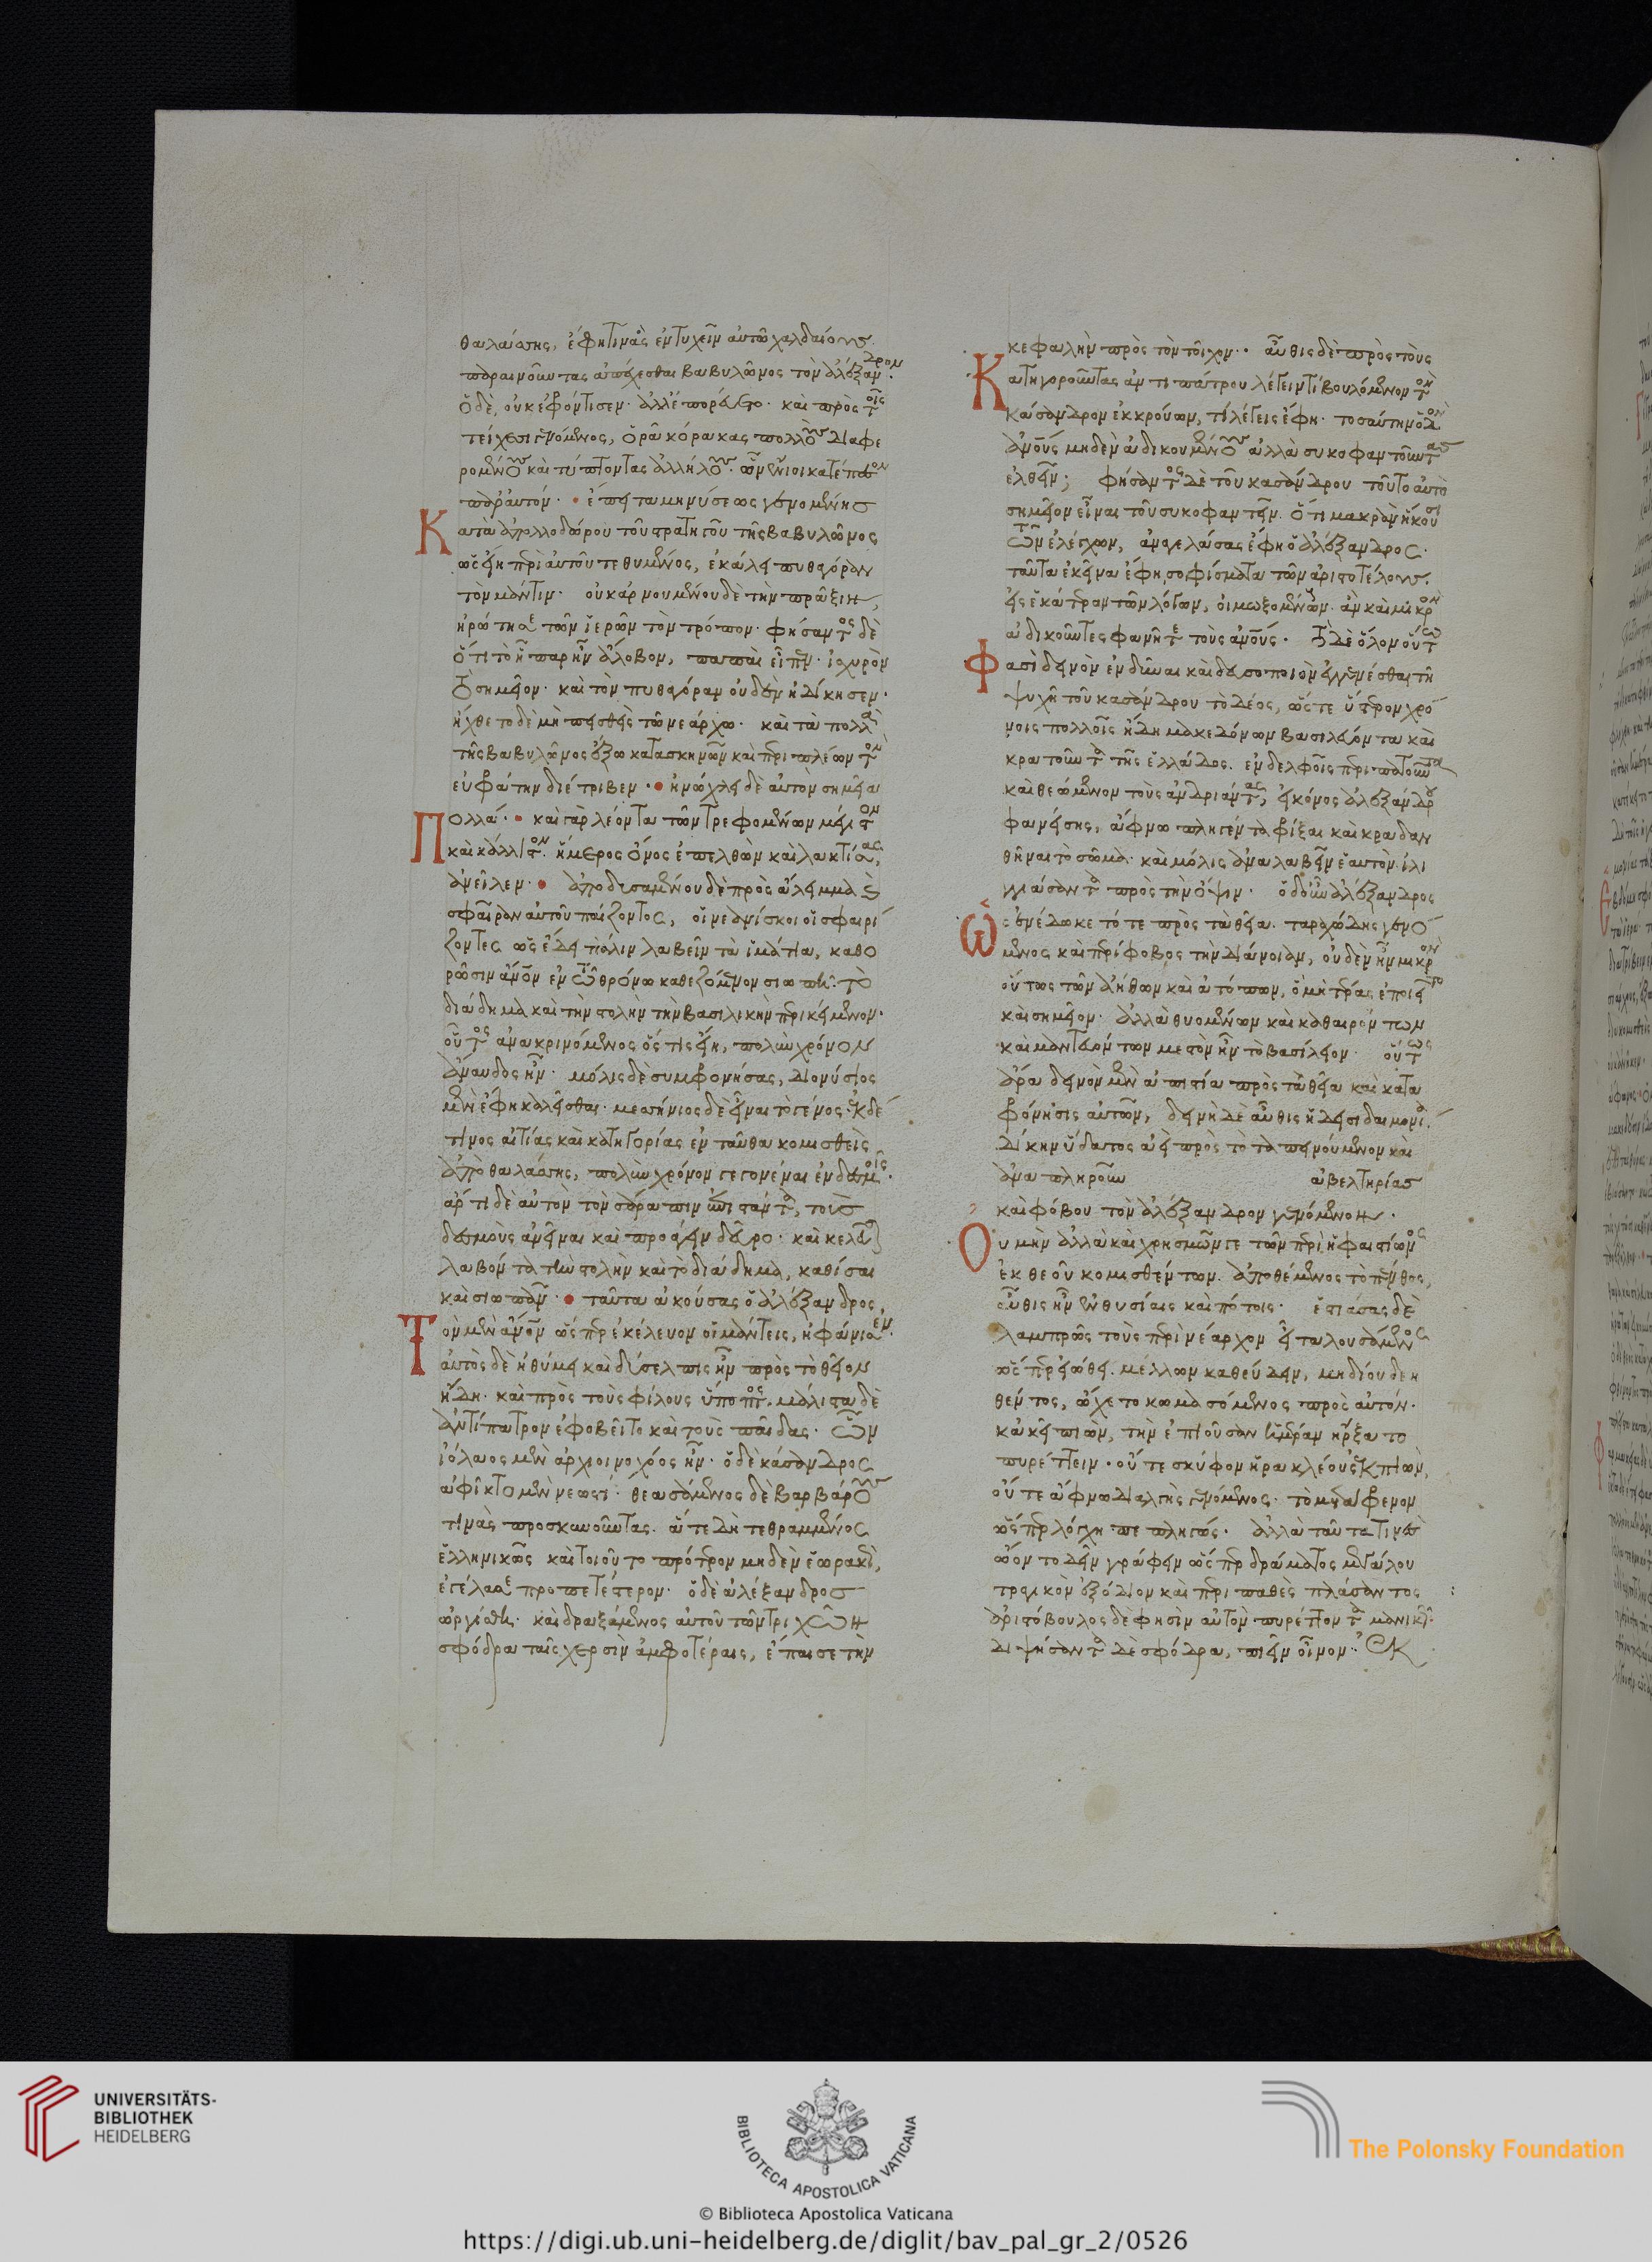 θαλάσσης, ἔφη τινὰς ἐντυχεῖν αὐτῶ χαλδαίους
παραινοῦντας ἀπέχεσθαι βαβυλῶνος τὸν ἀλέξανδρον.
ὁ δὲ, οὐκ ἐφρόντισεν· ἀλλ' ἐπορεύετο· καὶ πρὸς τοῖς
τείχεσι γενόμενος, ὁρᾶ κόρακας πολλοὺς διαφε
ρομένους καὶ τύπτοντας ἀλλήλους. ὧν ἔνιοι κατέπεσον
παρ' αὐτόν· ἔπειτα μηνύσεως γενομένης
Κατὰ ἀπολλοδώρου τοῦ στρατηγοῦ τῆς βαβυλῶνος
ὡς εἴη περὶ αὐτοῦ τεθυμένος, ἐκάλει πυθαγόραν
τὸν μάντιν· οὐκ ἀρνουμένου δὲ τὴν πρᾶξιν,
ἠρώτησε τῶν ἱερῶν τὸν τρόπον· φήσαντος δὲ
ὅτι τὸ ἧπαρ ἦν ἄλοβον, παπαὶ εἶπεν· ἰσχυρὸν
τὸ σημεῖον· καὶ τὸν πυθαγόραν οὐδὲν ἠδίκησεν·
ἤχθετο δὲ μὴ πεισθεὶς τῶ νεάρχω· καὶ τὰ πολλὰ
τῆς βαβυλῶνος ἔξω κατασκηνῶν καὶ περιπλέων τὸν
εὐφράτην διέτριβεν· ἠνώχλει δὲ αὐτὸν σημεῖα
Πολλά· καὶ γὰρ λέοντα τῶν τρεφομένων μέγιστον
καὶ κάλλιστον· ἥμερος ὄνος ἐπελθὼν καὶ λακτίσας,
ἀνεῖλεν· ἀποδυσαμένου δὲ πρὸς ἄλειμμα καὶ
σφαῖραν αὐτοῦ παίζοντος, οἱ νεανίσκοι οἱ σφαιρί
ζοντες ὡς ἔδει πάλιν λαβεῖν τὰ ἱμάτια, καθο
ρῶσιν ἄνθρωπον ἐν τῶ θρόνω καθεζόμενον σιωπῆ· τὸ
διάδημα καὶ τὴν στολὴν τὴν βασιλικὴν περικείμενον·
οὗτος ἀνακρινόμενος ὅστις εἴη, πολὺν χρόνον
ἄναυδος ἦν· μόλις δὲ συμφρονήσας, διονύσιος
μὲν ἔφη καλεῖσθαι· μεσσήνιος δὲ εἶναι τὸ γένος· ἐκ δέ
τινος αἰτίας καὶ κατηγορίας ἐνταῦθα κομισθεὶς
ἀπὸ θαλάσσης, πολὺν χρόνον γεγονέναι ἐν δεσμοῖς·
ἄρτι δὲ αὐτὸν τὸν σάραπιν ἐπιστάντα, τοὺς
δεσμοὺς ἀνεῖναι καὶ προάγειν δεῦρο· καὶ κελεῦσαι
λαβόντα τὴν στολὴν καὶ τὸ διάδημα, καθίσαι
καὶ σιωπᾶν· ταῦτα ἀκούσας ὁ ἀλέξανδρος,
Τὸν μὲν ἄνθρωπον ὥσπερ ἐκέλευον οἱ μάντεις, ἠφάνισεν·
αὐτὸς δὲ ἠθύμει καὶ δύσελπις ἦν πρὸς τὸ θεῖον
ἤδη· καὶ πρὸς τοὺς φίλους ὕποπτος· μάλιστα δὲ
ἀντίπατρον ἐφοβεῖτο καὶ τοὺς παῖδας· ὧν
ἰόλαος μὲν ἀρχιοινοχόος ἦν· ὁ δὲ κάσανδρος
ἀφῖκτο μὲν νεωστί· θεασάμενος δὲ βαρβάρους
τινὰς προσκυνοῦντας· ἅτε δὴ τεθραμμένος
ἑλληνικῶς καὶ τοιοῦτο πρότερον μηδὲν ἑωρακὼς,
ἐγέλασε προπετέστερον· ὁ δὲ ἀλέξανδρος
ὠργίσθη· καὶ δραξάμενος αὐτοῦ τῶν τριχῶν
σφόδρα ταῖς χερσὶν ἀμφοτέραις, ἔπαισε τὴν
κεφαλὴν πρὸς τὸν τοῖχον· αὖθις δὲ πρὸς τοὺς
Κατηγοροῦντας ἀντιπάτρου λέγειν τί βουλόμενον τὸν
κάσανδρον ἐκκρούων, τί λέγεις ἔφη· τοσαύτην ὁδὸν
ἀνθρώπους μηδὲν ἀδικουμένους ἀλλὰ συκοφαντοῦντας
ἐλθεῖν; φήσαντος δὲ τοῦ κασάνδρου τοῦτο αὐτὸ
σημεῖον εἶναι τοῦ συκοφαντεῖν· ὅτι μακρὰν ἥκουσι
τῶν ἐλέγχων, ἀναγελάσας ἔφη ὁ ἀλέξανδρος·
ταῦτα ἐκεῖνα ἔφη σοφίσματα τῶν ἀριστοτέλους·
εἰς ἑκάτερον τῶν λόγων, οἰμωξομένων· ἂν καὶ μικρὸν
ἀδικοῦντες φανῆτε τοὺς ἀνθρώπους· τὸ δὲ ὅλον οὕτω
Φασὶ δεινὸν ἐνδῦναι καὶ δευσοποιὸν ἐγγενέσθαι τῆ
ψυχῆ τοῦ κασάνδρου τὸ δέος, ὥστε ὕστερον χρό
νοις πολλοῖς ἤδη μακεδόνων βασιλεύοντα καὶ
κρατοῦντα τῆς ἑλλάδος· ἐν δελφοῖς περιπατοῦντα
καὶ θεώμενον τοὺς ἀνδριάντας, εἰκόνος ἀλεξάνδρου
φανείσης, ἄφνω πληγέντα φρίξαι καὶ κραδαν
θῆναι τὸ σῶμα· καὶ μόλις ἀναλαβεῖν ἑαυτὸν ἰλι
γγιάσαντα πρὸς τὴν ὄψιν· ὁ δ' οὖν ἀλέξανδρος
Ὡς ἐνέδωκε τότε πρὸς τὰ θεῖα· ταραχώδης γενό
μενος καὶ περίφοβος τὴν διάνοιαν, οὐδὲν ἦν μικρὸν
οὕτως τῶν ἀήθων καὶ ἀτόπων, ὃ μὴ τέρας ἐποιεῖτο
καὶ σημεῖον· ἀλλὰ θυομένων καὶ καθαιρόντων
καὶ μαντευόντων μεστὸν ἦν τὸ βασίλειον· οὕτως
ἄρα δεινὸν μὲν ἀπιστία πρὸς τὰ θεῖα καὶ κατα
φρόνησις αὐτῶν, δεινὴ δὲ αὖθις ἡ δεισιδαιμονία·
δίκην ὕδατος ἀεὶ πρὸς τὸ ταπεινούμενον καὶ
ἀναπληροῦν ἀβελτηρίας
καὶ φόβου τὸν ἀλέξανδρον γενόμενον·
Οὐ μὴν ἀλλὰ καὶ χρησμῶν γε τῶν περὶ ἡφαιστίωνος
ἐκ θεοῦ κομισθέντων· ἀποθέμενος τὸ πένθος,
αὖθις ἦν ἐν θυσίαις καὶ πότοις· ἑστιάσας δὲ
λαμπρῶς τοὺς περὶ νέαρχον εἶτα λουσάμενος
ὥσπερ εἰώθει· μέλλων καθεύδειν, μηδίου δεη
θέντος, ὤχετο κωμασόμενος πρὸς αὐτόν·
κἀκεῖ πιὼν, τὴν ἐπιοῦσαν ἡμέραν ἤρξατο
πυρέττειν· οὔτε σκύφον ἡρακλέους ἐκπιὼν,
οὔτε ἄφνω διαλγὴς γενόμενος· τὸ μετάφρενον
ὥσπερ λόγχη πεπληγώς· ἀλλὰ ταῦτα τινὲς
ὤοντο δεῖν γράφειν ὥσπερ δράματος μεγάλου
τραγικὸν ἐξόδιον καὶ περιπαθὲς πλάσαντες
ἀριστόβουλος δέ φησὶν αὐτὸν πυρέττοντα μανικῶς·
διψήσαντα δὲ σφόδρα, πιεῖν οἶνον· ἐκ
UNIVERSITÄTS-
BIBLIOTHEK
HEIDELBERG
BIBLIOTECA APOSTOLICA VATICANA
The Polonsky Foundation
© Biblioteca Apostolica Vaticana
https://digi.ub.uni-heidelberg.de/diglit/bav_pal_gr_2/0526